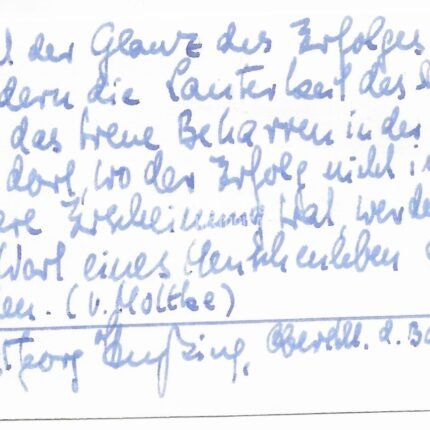 der Glanz des Erfolges
dern die Lauterkeit des
das treue Beharren in der
dort, wo der Erfolg nicht i
ere Erscheinung trat, werde
Wert eines Menschenleben
en. (v. Moltke)
Oberstlt. d. B